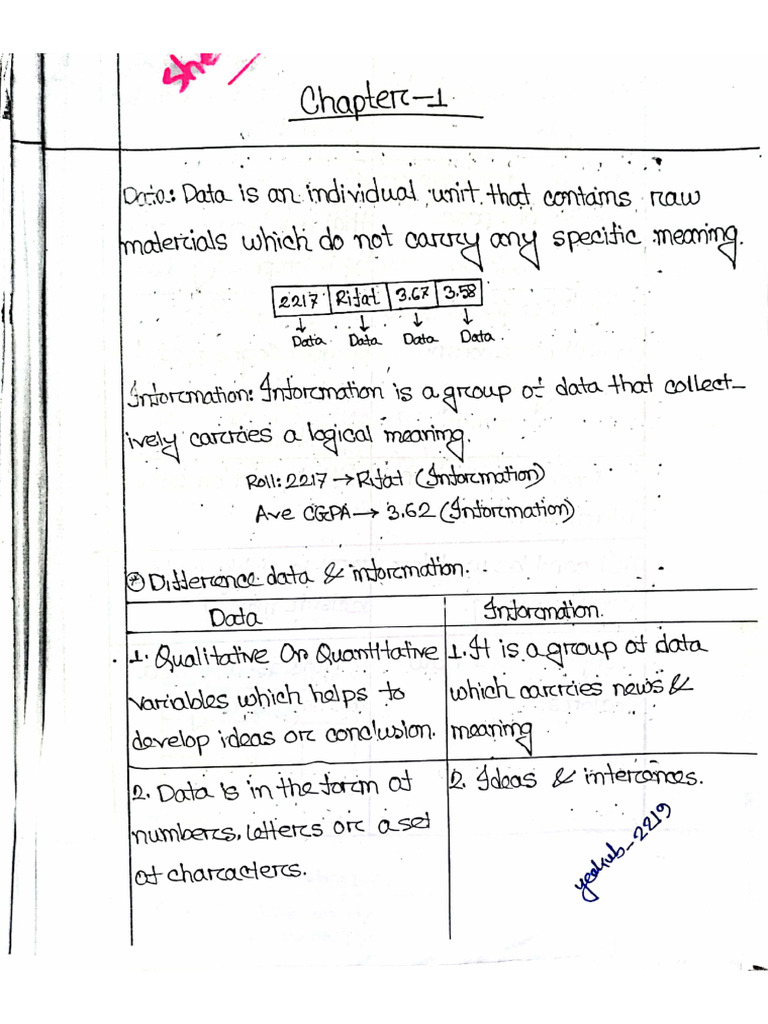 She
Chapter-1
Data: Data is an individual unit that contains raw
materials which do not carry any specific meaning.
2217 Rifat 3.67 3.58
Data Data Data Data.
Information: Information is a group of data that collect-
ively carries a logical meaning.
Roll: 2217 → Rifat (Information)
Ave CGPA → 3.62 (Information)
* Difference data & information.
Data Information.
1. Qualitative Or Quantitative 1. It is a group of data
variables which helps to which carries news &
develop ideas or conclusion. meaning
2. Data is in the form of 2. Ideas & inferences.
numbers, letters or a set
of characters.
yeakub_2219